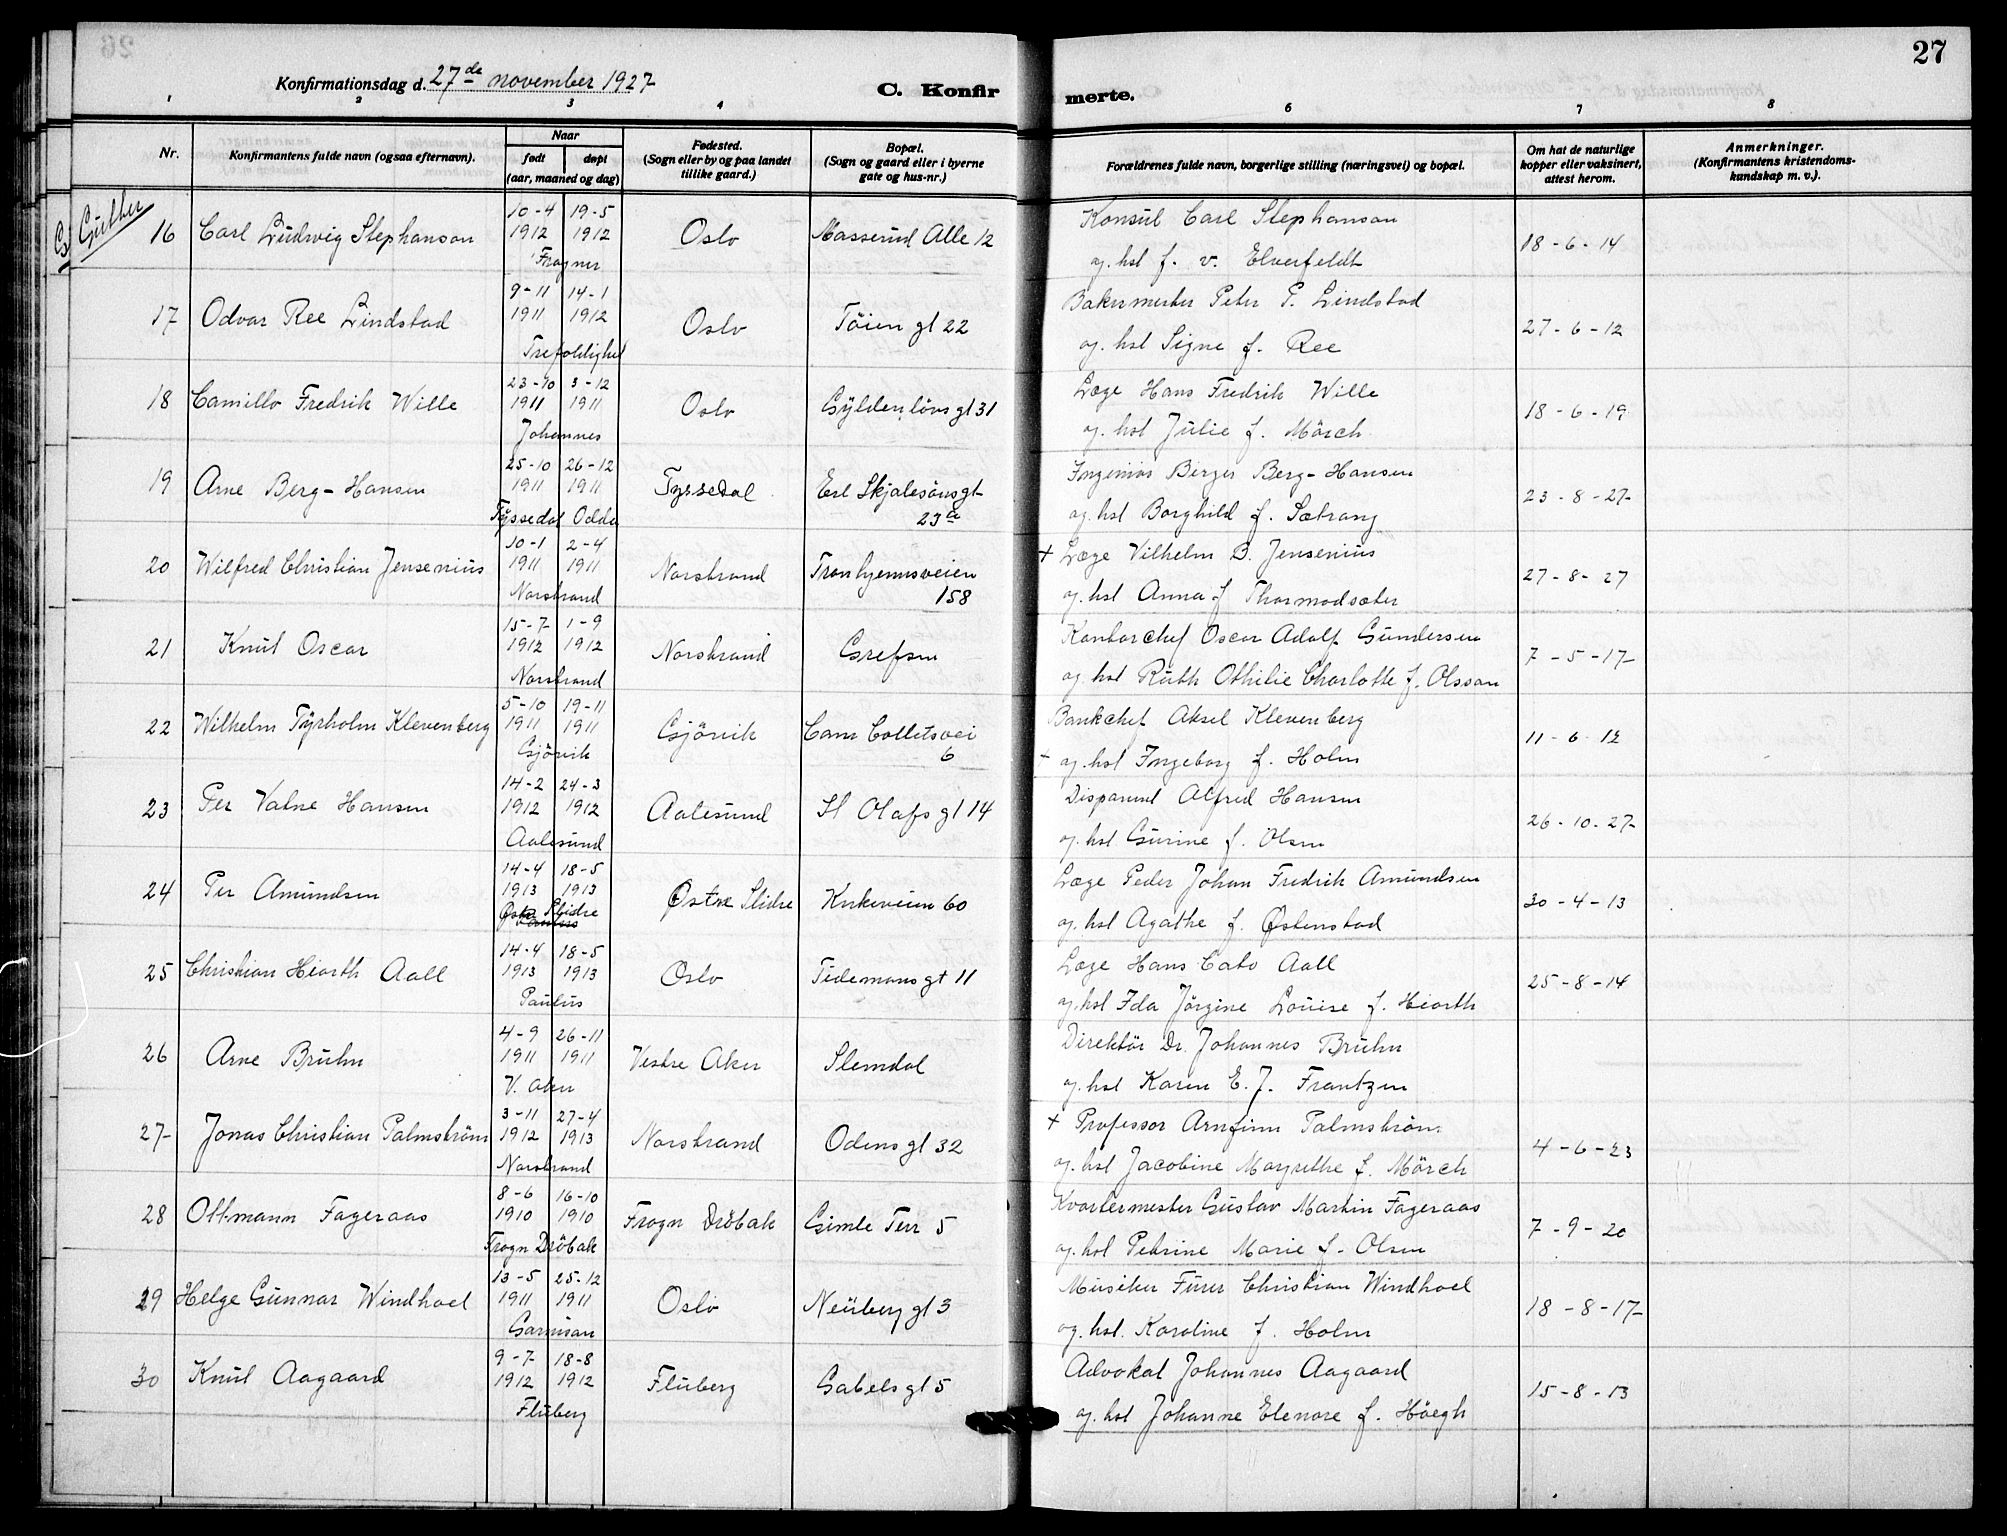 27
Konfirmationsdag d. 27de november 1927
C. Konfirmerte.
1 2 3 4 6 7 8
Nr. Konfirmantens fulde navn (ogsaa efternavn). Naar født døpt (aar, maaned og dag) Fødested. (Sogn eller by og paa landet tillike gaard.) Bopæl. (Sogn og gaard eller i byerne gate og hus-nr.) Forældrenes fulde navn, borgerlige stilling (næringsvei) og bopæl. Om hat de naturlige kopper eller vaksinert, attest herom. Anmerkninger. (Konfirmantens kristendomskundskap m. v.).
Gutter
16 Carl Ludwig Stephanson 10-4 1912 19-5 1912 Frogner Oslo Masserud Alle 12 Konsul Carl Stephanson
og hst f. v. Elverfeldt 18-6-14
17 Odvar Ree Lindstad 9-11 1911 14-1 1912 Trefoldighet Oslo Töien gt 22 Bakermester Peter P. Lindstad
og. hst Signe f. Ree 27-6-12
18 Camillo Fredrik Wille 23-10 1911 3-12 1911 Johannes Oslo Gyldenlövs gt 31 Læge Hans Fredrik Wille
og. hst Julie f. Mörch 18-6-19
19 Arne Berg-Hansen 25-10 1911 26-12 1911 Tyssedal Odda Tyssedal Erl Skjalgsöns gt 23a Ingeniör Birger Berg-Hansen
og. hst Borghild f. Sætrang 23-8-27
20 Wilfred Christian Jensenius 10-1 1911 2-4 1911 Norstrand Norstrand Tronhjemsveien 158 + Læge Vilhelm B. Jensenius
og. hst Anna f Thormodsæter 27-8-27
21 Knut Oscar 15-7 1912 1-9 1912 Norstrand Norstrand Grefsen Kontorchef Oscar Adolf Gundersen
og. hst Ruth Othilie Charlotte f. Olsson 7-5-17
22 Wilhelm Tyrholm Klevenberg 5-10 1911 19-11 1911 Gjövik Gjövik Cam Colletsvei 6 Bankchef Aksel Klevenberg
+ og. hst Ingeborg f. Holm 11-6-12
23 Per Valne Hansen 14-2 1912 24-3 1912 Aalesund Aalesund St Olafs gt 14 Disponent Alfred Hansen
og. hst Gurine f. Olsen 26-10-27
24 Per Amundsen 14-4 1913 18-5 1913 Øster Slidre Østre Slidre Kirkeveien 60 Læge Peder Johan Fredrik Amundsen
og. hst Agathe f. Østenstad 30-4-13
25 Christian Hiorth Aall 14-4 1913 18-5 1913 Paulus Oslo Tidemans gt 11 Læge Hans Cato Aall
og. hst Ida Jörgine Louise f. Hiorth 25-8-14
26 Arne Bruhn 4-9 1911 26-11 1911 V. Aker Vestre Aker Slemdal Direktör Dr. Johannes Bruhn
og. hst Karen E. f. Frantzen
27 Jonas Christian Palmström 3-11 1912 27-4 1913 Norstrand Norstrand Odens gt 32 + Professor Arnfinn Palmström
og. hst Jacobine Margrethe f. Mörch 4-6-23
28 Ottmann Fageraas 8-6 1910 16-10 1910 Frogn Dröbak Frogn Dröbak Gimle Terr 5 Kvartermester Gustav Martin Fageraas
og. hst Petrine Marie f. Olsen 7-9-20
29 Helge Gunnar Windhoel 13-5 1911 25-12 1911 Garnison Oslo Neuberg gt 3 Musiker Furer Christian Windhoel
og. hst. Karoline f. Holm 18-8-17
30 Knut Aagaard 9-7 1912 18-8 1912 Fluberg Fluberg Gabels gt 5 Advokat Johannes Aagaard
og. hst Johanne Elenore f. Höegh 15-8-13